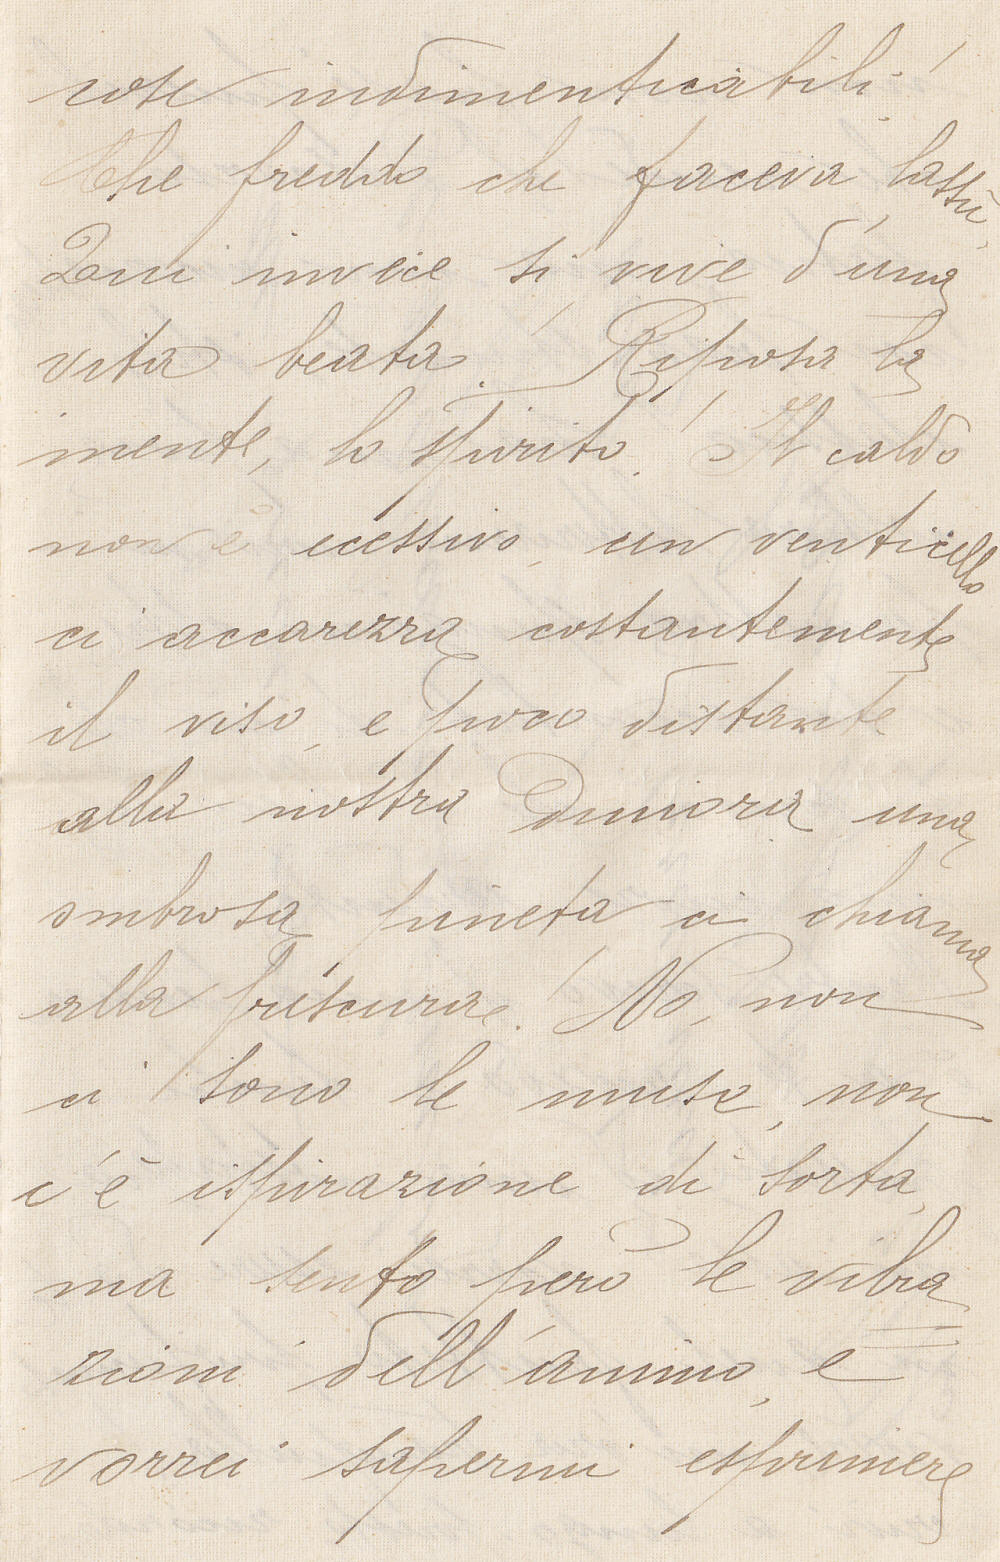 cose indimenticabili!
Che freddo che faceva lassù,
Qui invece si vive d'una
vita beata! Riposa la
mente, lo spirito! Il caldo
non è ecessivo, un venticello
ci accarezza costantemente
il viso, e poco distante
alla nostra Dimora una
ombrosa pineta ci chiama
alla frescura! No, non
ci sono le muse, non
c'è ispirazione di sorta,
ma sento però le vibra
zioni dell'animo, e
vorrei sapermi esprimere